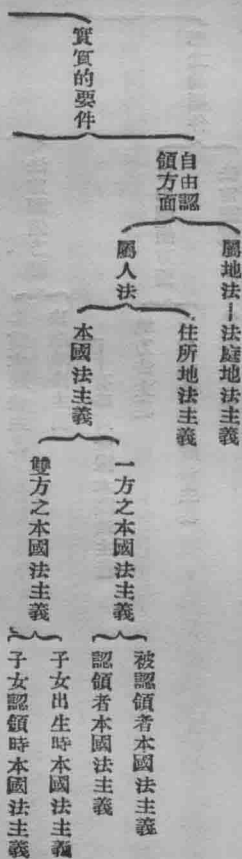 實質的要件
自由認
領方面
屬地法—法庭地法主義
屬人法
住所地法主義
本國法主義
一方之本國法主義
被認領者本國法主義
認領者本國法主義
雙方之本國法主義
子女出生時本國法主義
子女認領時本國法主義